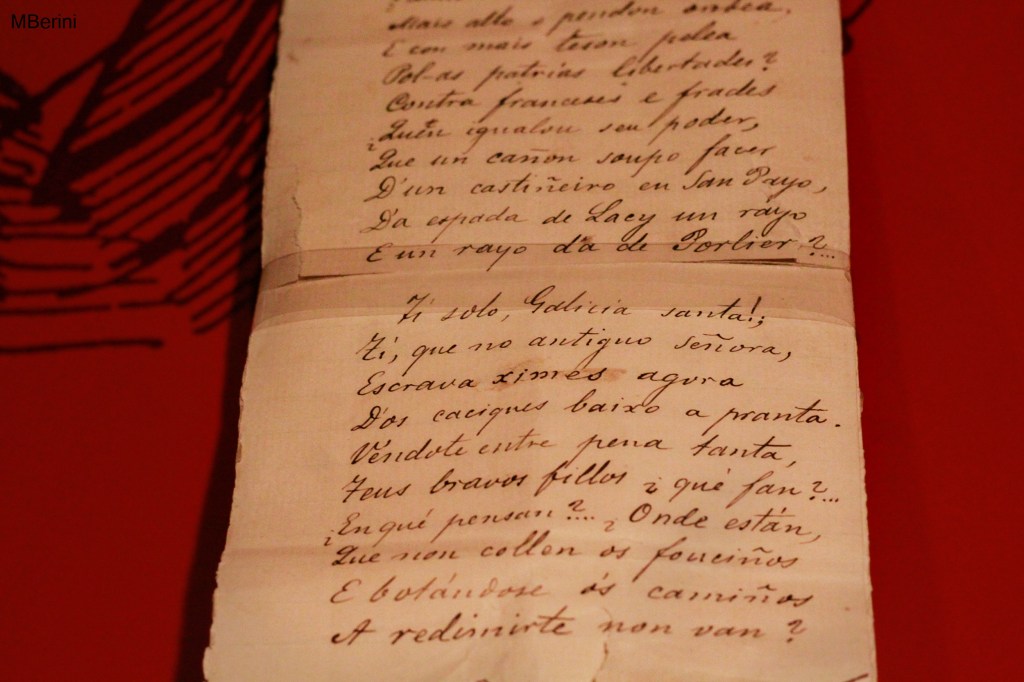 MBerini
Mais alto o pendon ondea,
E con mais teson pelea
Pol-as patrias libertades?
Contra franceses e frades
¿Quén igualou seu poder,
Que un cañon soupo facer
D'un castiñeiro en San Payo,
D'a espada de Lacy un rayo
E un rayo d'a de Porlier?...
Ti solo, Galicia santa!;
Ti, que no antiguo señora,
Escrava ximes agora
D'os caciques baixo a pranta.
Véndote entre pena tanta,
Teus bravos fillos ¿qué fan?...
¿En qué pensan?... ¿Onde están,
Que non collen os fouciños
E botándose ós camiños
A redimirte non van?